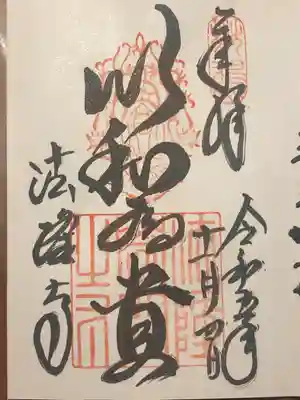 奉拝
令和五年
十一月廿四日
以和為貴
法隆寺